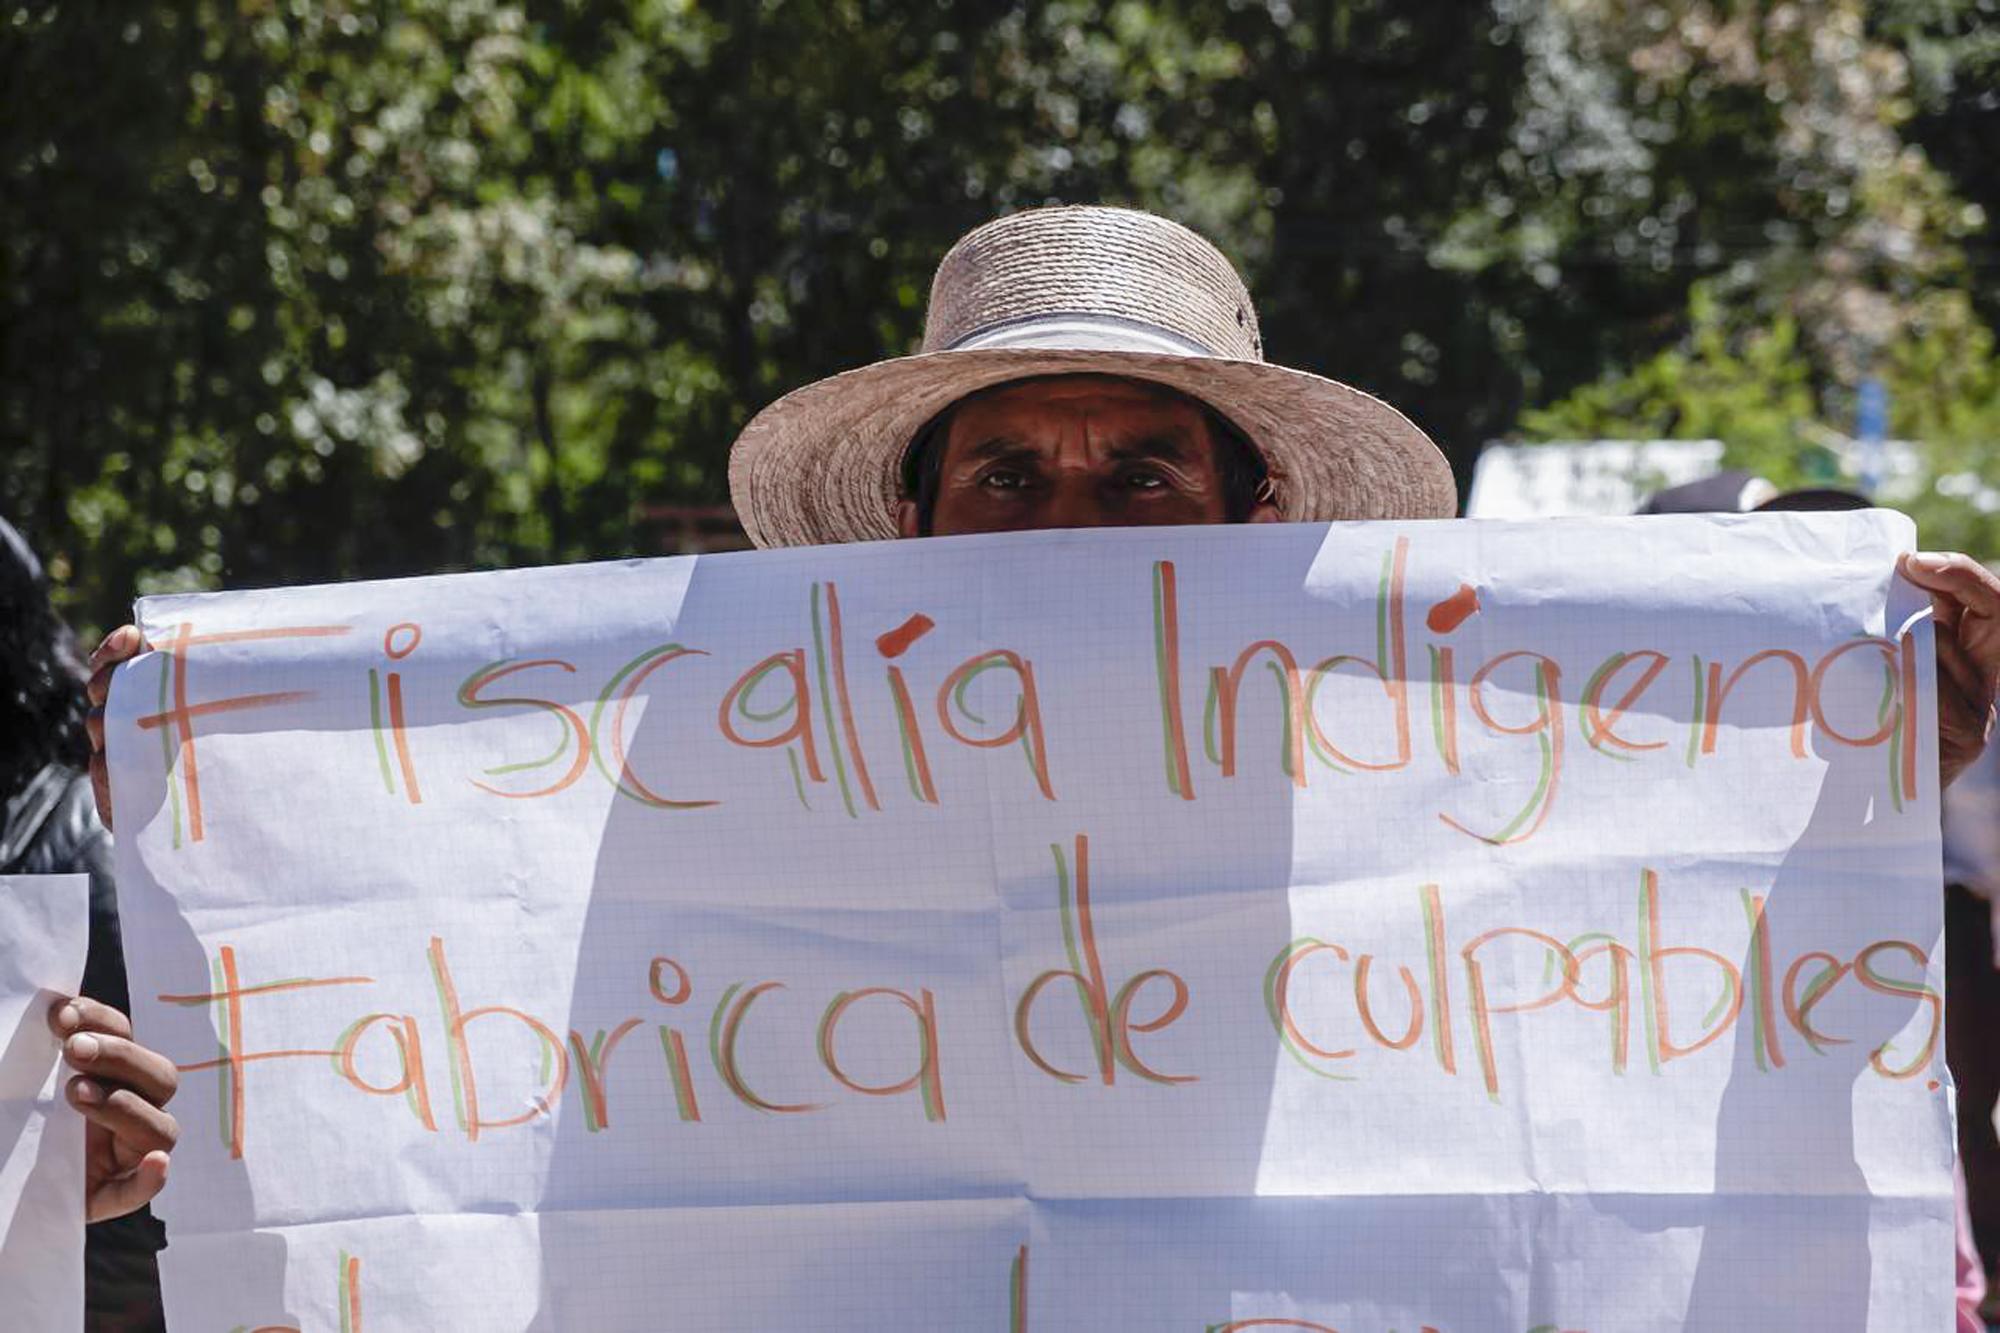 Fiscalía Indígena
Fabrica de culpables.